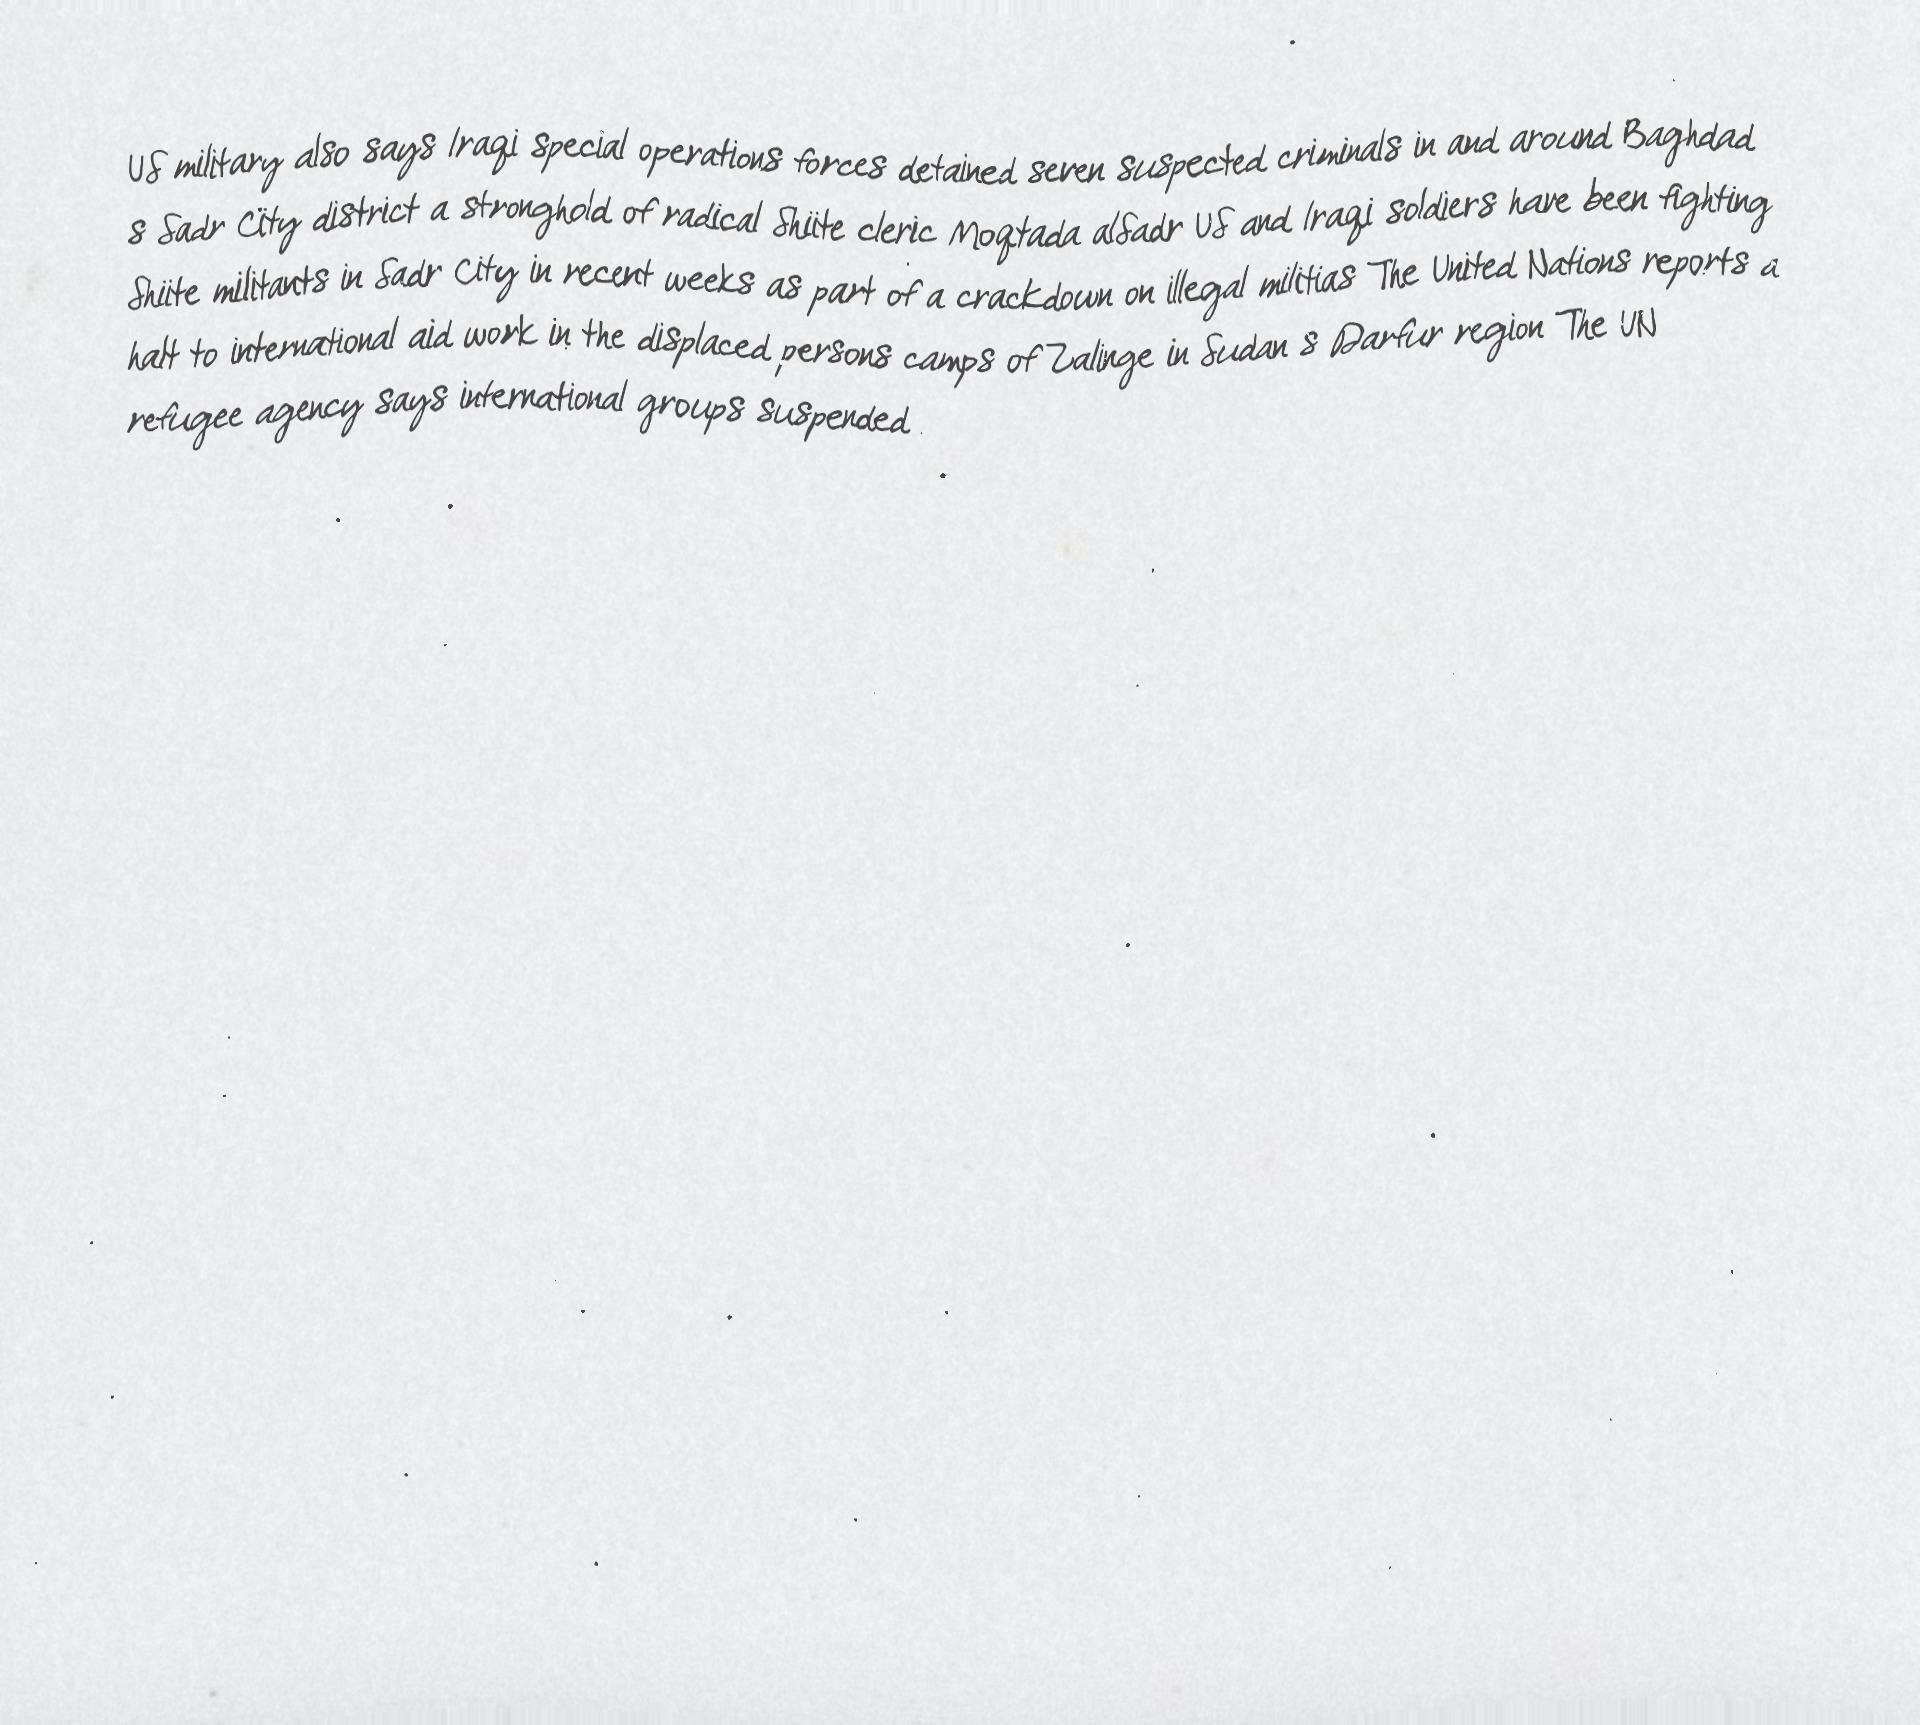 US military also says Iraqi special operations forces detained seven suspected criminals in and around Baghdad
s Sadr City district a stronghold of radical Shiite cleric Moqtada alSadr US and Iraqi soldiers have been fighting
Shiite militants in Sadr City in recent weeks as part of a crackdown on illegal militias The United Nations reports a
halt to international aid work in the displaced persons camps of Zalinge in Sudan s Darfur region The UN
refugee agency says international groups suspended